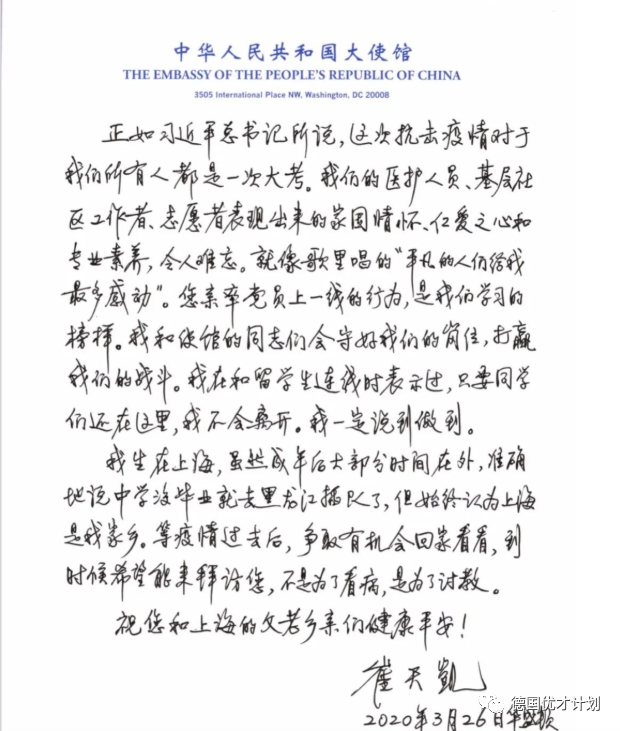 中华人民共和国大使馆
THE EMBASSY OF THE PEOPLE'S REPUBLIC OF CHINA
3505 International Place NW, Washington, DC 20008
正如习近平总书记所说，这次抗击疫情对于
我们所有人都是一次大考。我们的医护人员、基层社
区工作者、志愿者表现出来的家国情怀、仁爱之心和
专业素养，令人难忘。就像歌里唱的“平凡的人们给我
最多感动”。您亲率党员上一线的行为，是我们学习的
榜样。我和使馆的同志们会守好我们的岗位，打赢
我们的战斗。我在和留学生连线时表示过，只要同学
们还在这里，我不会离开。我一定说到做到。
我生在上海，虽然成年后大部分时间在外，准确
地说中学没毕业就去黑龙江插队了，但始终认为上海
是我家乡。等疫情过去后，争取有机会回家看看，到
时候希望能来拜访您，不是为了看病，是为了讨教。
祝您和上海的父老乡亲们健康平安！
崔天凯
2020年3月26日华盛顿
德国优才计划